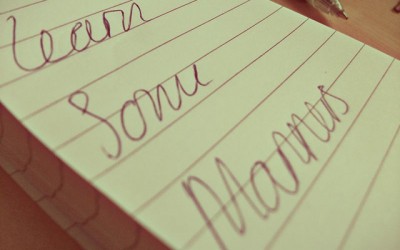 Learn
Some
Manners